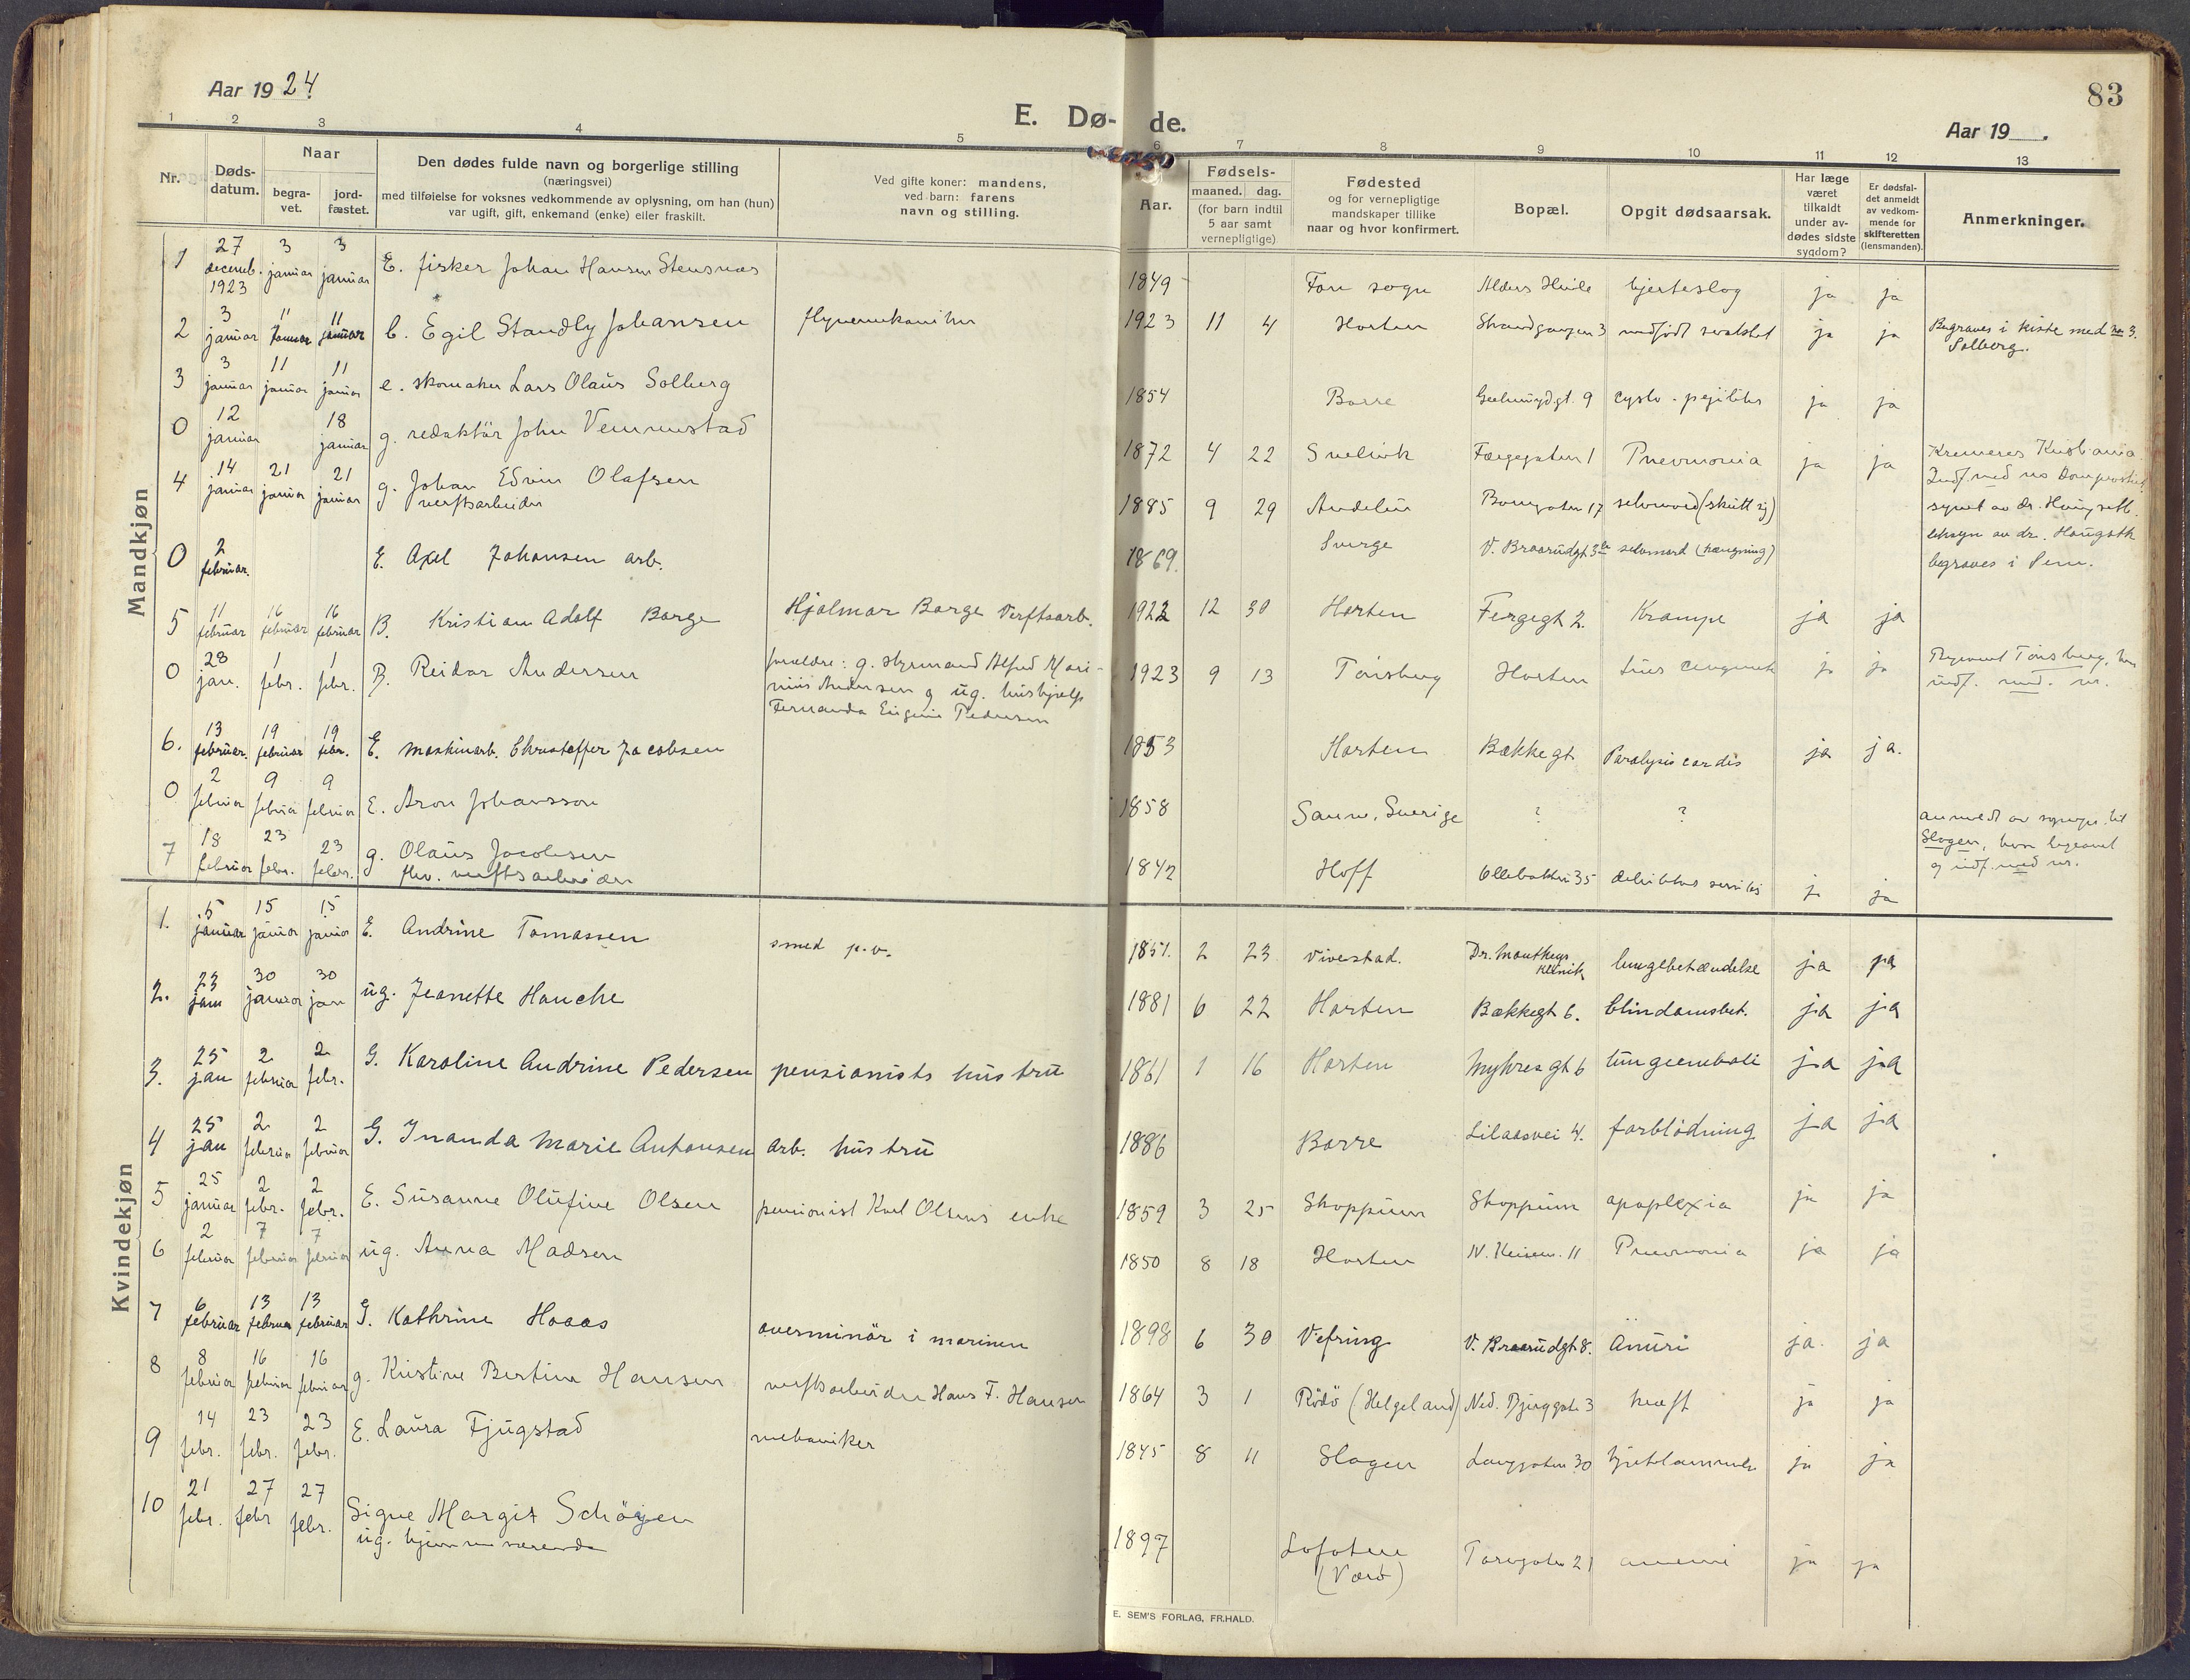 Aar 1924
E. Dø- de.
83
Aar 19 .
1 2 3 4 5 6 7 8 9 10 11 12 13
Nr.
Døds-
datum.
Naar
begra-
vet.
jord-
fæstet.
Den dødes fulde navn og borgerlige stilling
(næringsvei)
med tilføielse for voksnes vedkommende av oplysning, om han (hun)
var ugift, gift, enkemand (enke) eller fraskilt.
Ved gifte koner: mandens,
ved barn: farens
navn og stilling.
Aar.
Fødsels-
maaned. dag.
(for barn indtil
5 aar samt
vernepligtige)
Fødested
og for vernepligtige
mandskaper tillike
naar og hvor konfirmert.
Bopæl.
Opgit dødsaarsak.
Har læge
været
tilkaldt
under av-
dødes sidste
sygdom?
Er dødsfal-
det anmeldt
av vedkom-
mende for
skifteretten
(lensmanden).
Anmerkninger.
Mandkjøn
1 27 decemb. 1923 3 januar 3 januar E. fisker Johan Hansen Stensnæs 1849 sogn hjerteslag ja ja
2 3 januar 11 januar 11 januar b. Egil Standly Johansen 1923 11 4 Horten ja ja Begraves i kiste med no 3.
Solberg.
3 3 januar 11 januar 11 januar e. skomaker Lars Olaus Solberg 1854 Borre 9 ja ja
0 12 januar 18 januar g. redaktør John Vemmestad 1872 4 22 Svelvik Færgegaten 1 Pnevmonia ja ja Kremeres Kristiania
4 14 januar 21 januar 21 januar g. Johan Edvin Olafsen
verftsarbeider
1885 9 29 Andebu 17 selvmord (skutt sig) synet av dr.
0 2 februar. E. Axel Johansen arb. 1869. Sverge V. Braarudgt. selvmord (hængning) begraves i Sem.
5 11 februar 16 februar 16 februar B. Kristian Adolf Borge Hjalmar Borge Verftsarb. 1922 12 30 Horten Fergegt 2. Krampe ja ja
0 28 jan. 1 febr. 1 febr. B. Reidar Andersen forældre: g. styrmand Alfred Mari-
nius Andersen og ug. hushjelp
Fernanda Eugenie Pedersen
1923 9 13 Tønsberg Horten Lues congenita ja ja Begravet Tønsberg, her
indf. med. nr.
6. 13 februar. 19 februar 19 febr. E. maskinarb. Christoffer Jacobsen 1853 Horten Bækkegt Paralysis cordis ja ja.
0 2 februar 9 februar 9 februar E. Aron Johansson 1858 Sanne, Sverige ? ?
Slagen, her begravet
og indf. med nr.
7 18 februar 23 febr. 23 febr. g. Olaus Jacobsen
fhv. verftsarbeider
1842 Hoff 35 debilitas senilis ja ja
Kvindekjøn
1. 5 januar 15 januar 15 januar E. Andrine Tomassen smed p.v. 1851. 2 23 Vivestad. Dr. Mouthey
klinik
lungebetændelse ja ja
2. 23 jan 30 januar 30 jan ug. Jeanette Hauche 1881 6 22 Horten Bækkegt 6. blindtarmsbet. ja ja
3. 25 jan 2 februar 2 febr. G. Karoline Andrine Pedersen pensionists hustru 1861 1 16 Horten Myhres gt 6 lungeemboli ja ja
4 25 jan 2 februar 2 februar G. Inanda Marie Antonsen arb. hustru 1886 Borre Lilaasvei 4. forblødning ja ja
5 25 januar 2 febr. 2 febr. E. Susanne Olufine Olsen pensionist Karl Olsens enke 1859 3 25 Skoppum Skoppum apoplexia ja ja
6 2 februar 7 februar 7 februar ug. Anna Madsen 1850 8 18 Horten 11 Pneumonia ja ja
7 6 februar 13 februar 13 februar G. Kathrine Haaas overminør i marinen 1898 6 30 Vefring V. Braarudgt 8. Anuri ja. ja
8 8 februar 16 februar 16 februar g. Kristine Bertine Hansen verftsarbeider Hans F. Hansen 1864 3 1 Rødø (Helgeland) Ned. 3 kræft ja ja
9 14 febr. 23 febr. 23 febr. E. Laura Fjugstad mekaniker 1845 8 11 Slagen Langgaten 30 hjertelammelse ja ja
10 21 febr. 27 febr 27 febr. Signe Margit Schøyen
ug. hjemmeværende
1897 Lofoten
(Værø)
Torvgaten 21 anemi ja ja
E. SEM'S FORLAG, FR.HALD.